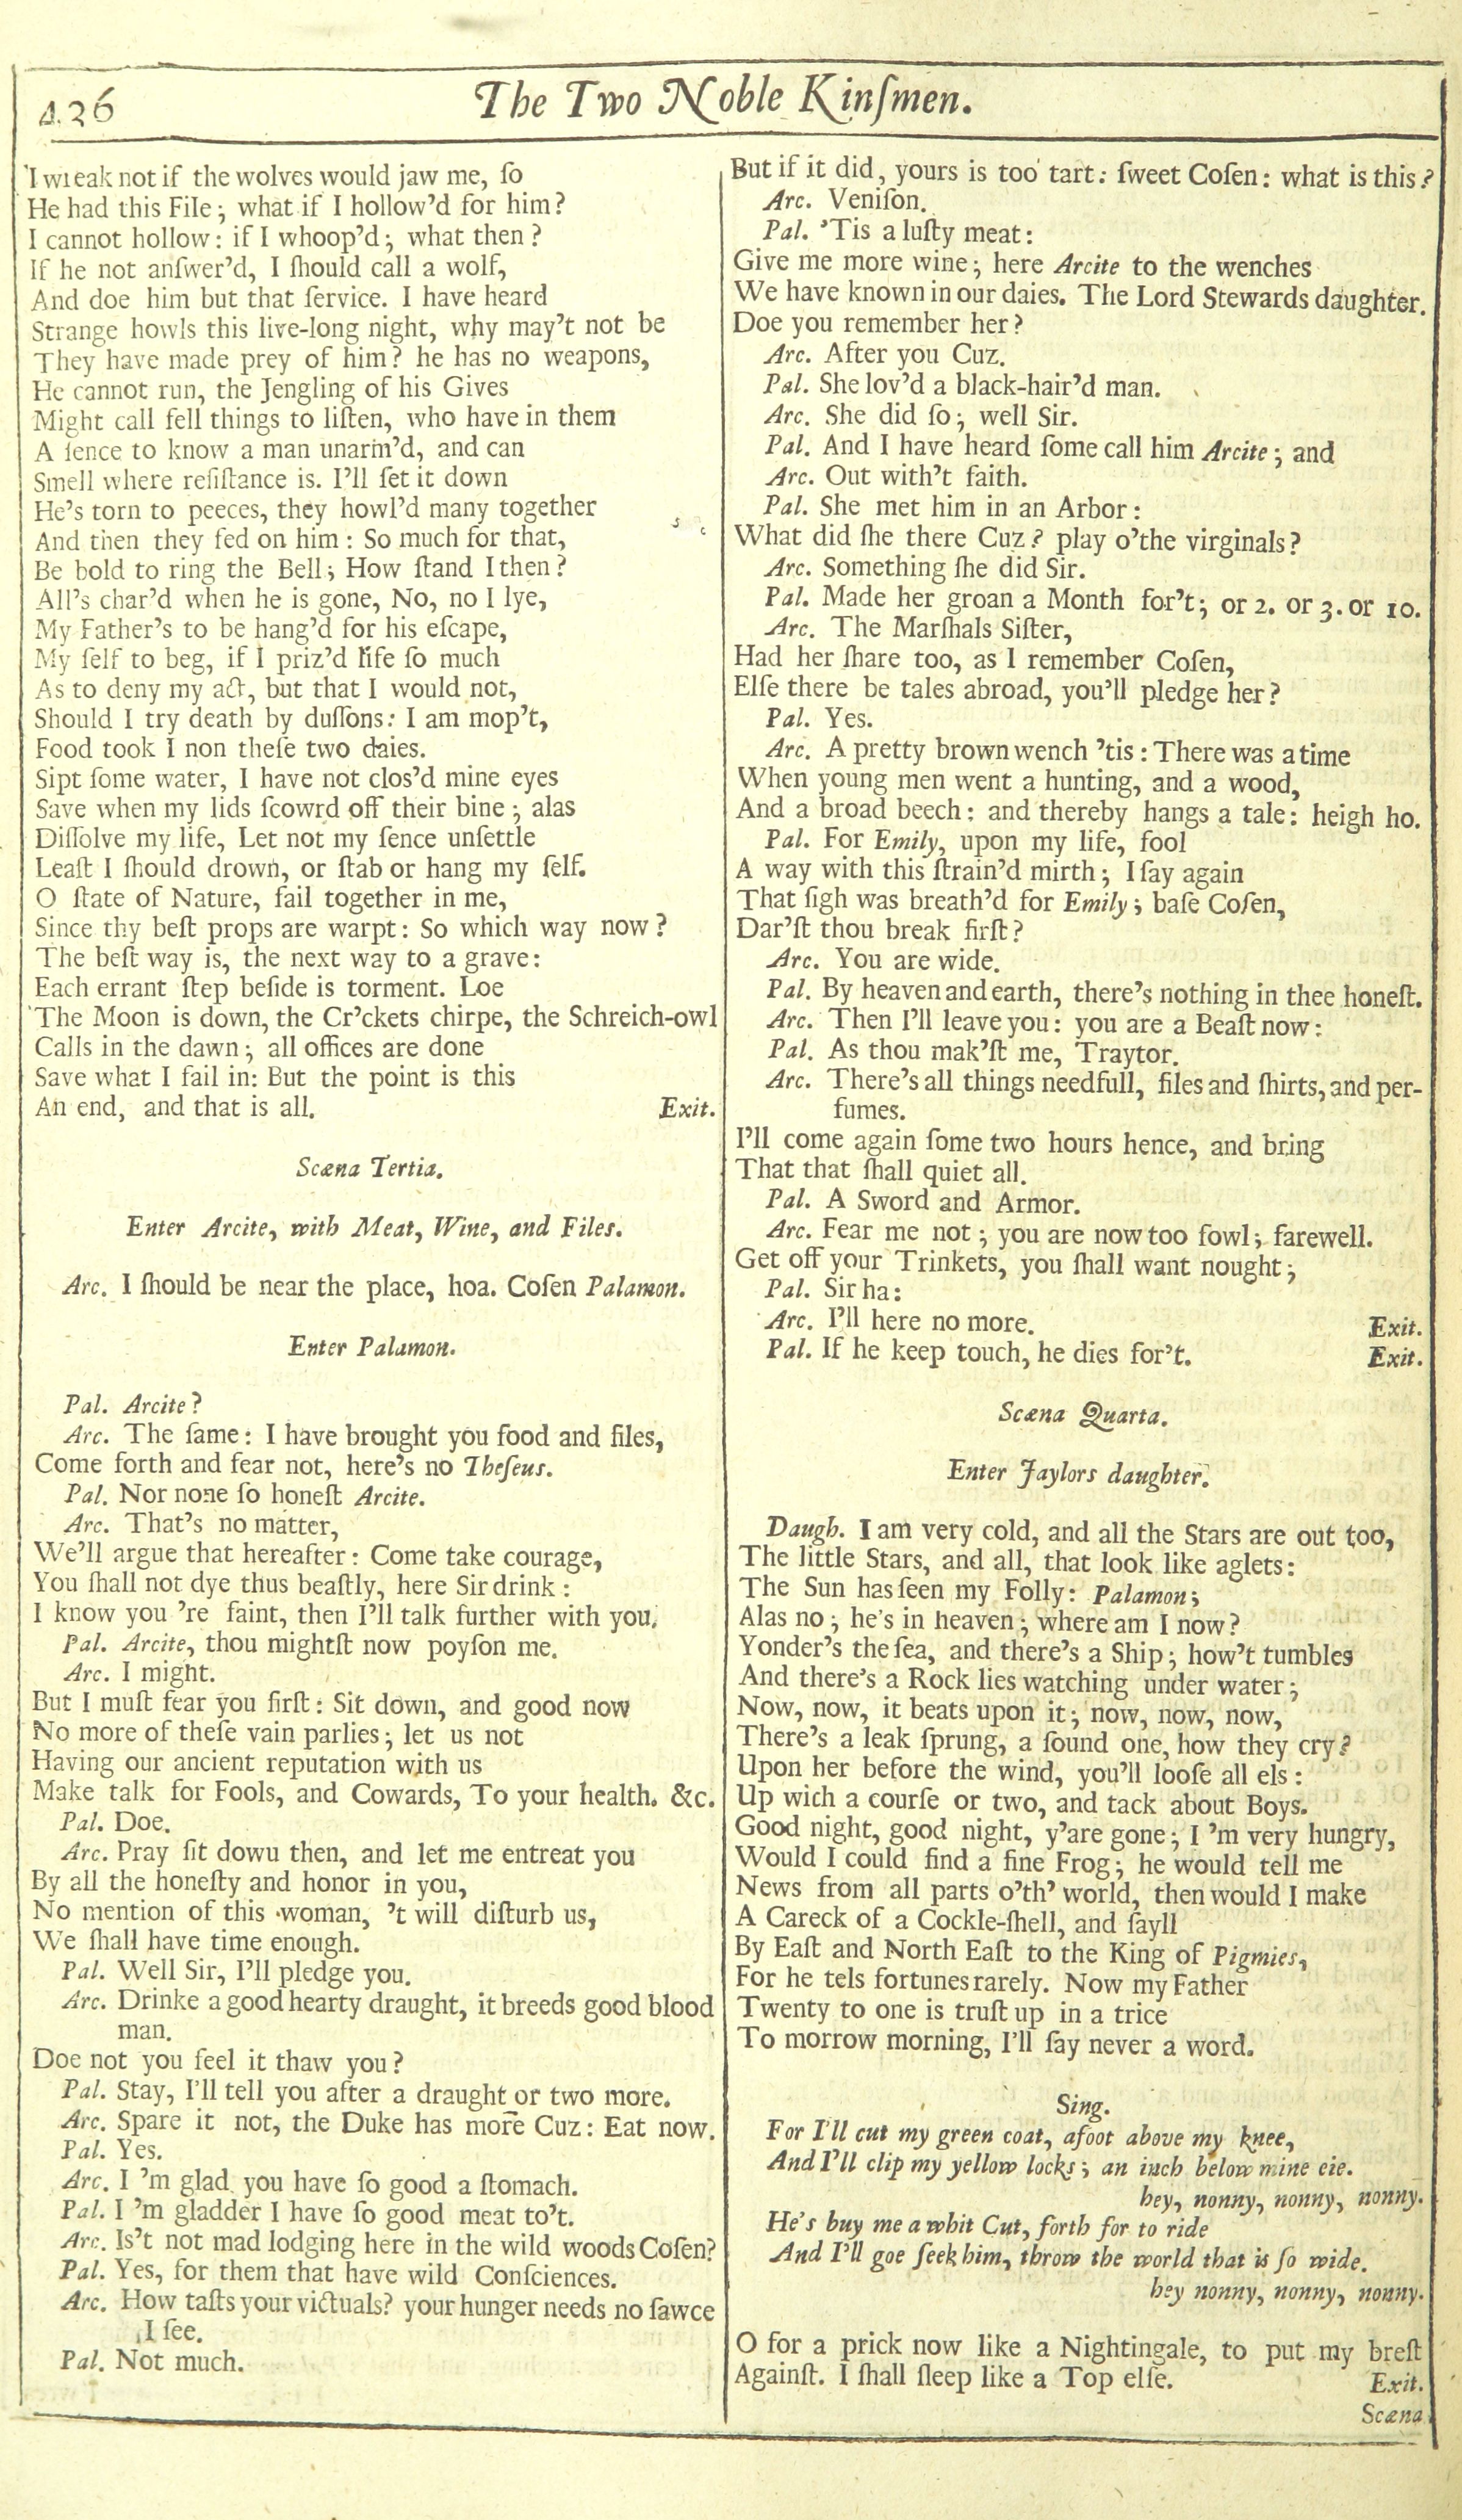 436
The Two Noble Kinſmen.
'I wreak not if the wolves would jaw me, ſo
He had this File; what if I hollow'd for him?
I cannot hollow: if I whoop'd; what then?
If he not anſwer'd, I ſhould call a wolf,
And doe him but that ſervice. I have heard
Strange howls this live-long night, why may't not be
They have made prey of him? he has no weapons,
He cannot run, the Jengling of his Gives
Might call fell things to liſten, who have in them
A ſence to know a man unarm'd, and can
Smell where reſiſtance is. I'll ſet it down
He's torn to peeces, they howl'd many together
And then they fed on him: So much for that,
Be bold to ring the Bell; How ſtand I then?
All's char'd when he is gone, No, no I lye,
My Father's to be hang'd for his eſcape,
My ſelf to beg, if I priz'd life ſo much
As to deny my act, but that I would not,
Should I try death by duſſons: I am mop't,
Food took I non theſe two daies.
Sipt ſome water, I have not clos'd mine eyes
Save when my lids ſcowrd off their bine; alas
Diſſolve my life, Let not my ſence unſettle
Leaſt I ſhould drown, or ſtab or hang my ſelf.
O ſtate of Nature, fail together in me,
Since thy beſt props are warpt: So which way now?
The beſt way is, the next way to a grave:
Each errant ſtep beſide is torment. Loe
The Moon is down, the Cr'ckets chirpe, the Schreich-owl
Calls in the dawn; all offices are done
Save what I fail in: But the point is this
An end, and that is all. Exit.
Scæna Tertia.
Enter Arcite, with Meat, Wine, and Files.
Arc. I ſhould be near the place, hoa. Coſen Palamon.
Enter Palamon.
Pal. Arcite?
Arc. The ſame: I have brought you food and files,
Come forth and fear not, here's no Theſeus.
Pal. Nor none ſo honeſt Arcite.
Arc. That's no matter,
We'll argue that hereafter: Come take courage,
You ſhall not dye thus beaſtly, here Sir drink:
I know you 're faint, then I'll talk further with you.
Pal. Arcite, thou mightſt now poyſon me.
Arc. I might.
But I muſt fear you firſt: Sit down, and good now
No more of theſe vain parlies; let us not
Having our ancient reputation with us
Make talk for Fools, and Cowards, To your health. &c.
Pal. Doe.
Arc. Pray ſit dowu then, and let me entreat you
By all the honeſty and honor in you,
No mention of this woman, 't will diſturb us,
We ſhall have time enough.
Pal. Well Sir, I'll pledge you.
Arc. Drinke a good hearty draught, it breeds good blood
man.
Doe not you feel it thaw you?
Pal. Stay, I'll tell you after a draught or two more.
Arc. Spare it not, the Duke has more Cuz: Eat now.
Pal. Yes.
Arc. I 'm glad you have ſo good a ſtomach.
Pal. I 'm gladder I have ſo good meat to't.
Arc. Is't not mad lodging here in the wild woods Coſen?
Pal. Yes, for them that have wild Conſciences.
Arc. How taſts your victuals? your hunger needs no ſawce
I ſee.
Pal. Not much.
But if it did, yours is too tart: ſweet Coſen: what is this?
Arc. Veniſon.
Pal. 'Tis a luſty meat:
Give me more wine; here Arcite to the wenches
We have known in our daies. The Lord Stewards daughter.
Doe you remember her?
Arc. After you Cuz.
Pal. She lov'd a black-hair'd man.
Arc. She did ſo; well Sir.
Pal. And I have heard ſome call him Arcite; and
Arc. Out with't faith.
Pal. She met him in an Arbor:
What did ſhe there Cuz? play o'the virginals?
Arc. Something ſhe did Sir.
Pal. Made her groan a Month for't; or 2. or 3. or 10.
Arc. The Marſhals Siſter,
Had her ſhare too, as I remember Coſen,
Elſe there be tales abroad, you'll pledge her?
Pal. Yes.
Arc. A pretty brown wench 'tis: There was a time
When young men went a hunting, and a wood,
And a broad beech: and thereby hangs a tale: heigh ho.
Pal. For Emily, upon my life, fool
A way with this ſtrain'd mirth; I ſay again
That ſigh was breath'd for Emily; baſe Coſen,
Dar'ſt thou break firſt?
Arc. You are wide.
Pal. By heaven and earth, there's nothing in thee honeſt.
Arc. Then I'll leave you: you are a Beaſt now:
Pal. As thou mak'ſt me, Traytor.
Arc. There's all things needfull, files and ſhirts, and per-
fumes.
I'll come again ſome two hours hence, and bring
That that ſhall quiet all.
Pal. A Sword and Armor.
Arc. Fear me not; you are now too fowl; farewell.
Get off your Trinkets, you ſhall want nought;
Pal. Sir ha:
Arc. I'll here no more. Exit.
Pal. If he keep touch, he dies for't. Exit.
Scæna Quarta.
Enter Jaylors daughter.
Daugh. I am very cold, and all the Stars are out too,
The little Stars, and all, that look like aglets:
The Sun has ſeen my Folly: Palamon;
Alas no; he's in heaven; where am I now?
Yonder's the ſea, and there's a Ship; how't tumbles
And there's a Rock lies watching under water;
Now, now, it beats upon it; now, now, now,
There's a leak ſprung, a ſound one, how they cry?
Upon her before the wind, you'll looſe all els:
Up wich a courſe or two, and tack about Boys.
Good night, good night, y'are gone; I 'm very hungry,
Would I could find a fine Frog; he would tell me
News from all parts o'th' world, then would I make
A Careck of a Cockle-ſhell, and ſayll
By Eaſt and North Eaſt to the King of Pigmies,
For he tels fortunes rarely. Now my Father
Twenty to one is truſt up in a trice
To morrow morning, I'll ſay never a word.
Sing.
For I'll cut my green coat, afoot above my knee,
And I'll clip my yellow locks; an iuch below mine eie.
hey, nonny, nonny, nonny.
He's buy me a whit Cut, forth for to ride
And I'll goe ſeek him, throw the world that is ſo wide.
hey nonny, nonny, nonny.
O for a prick now like a Nightingale, to put my breſt
Againſt. I ſhall ſleep like a Top elſe. Exit.
Scæna